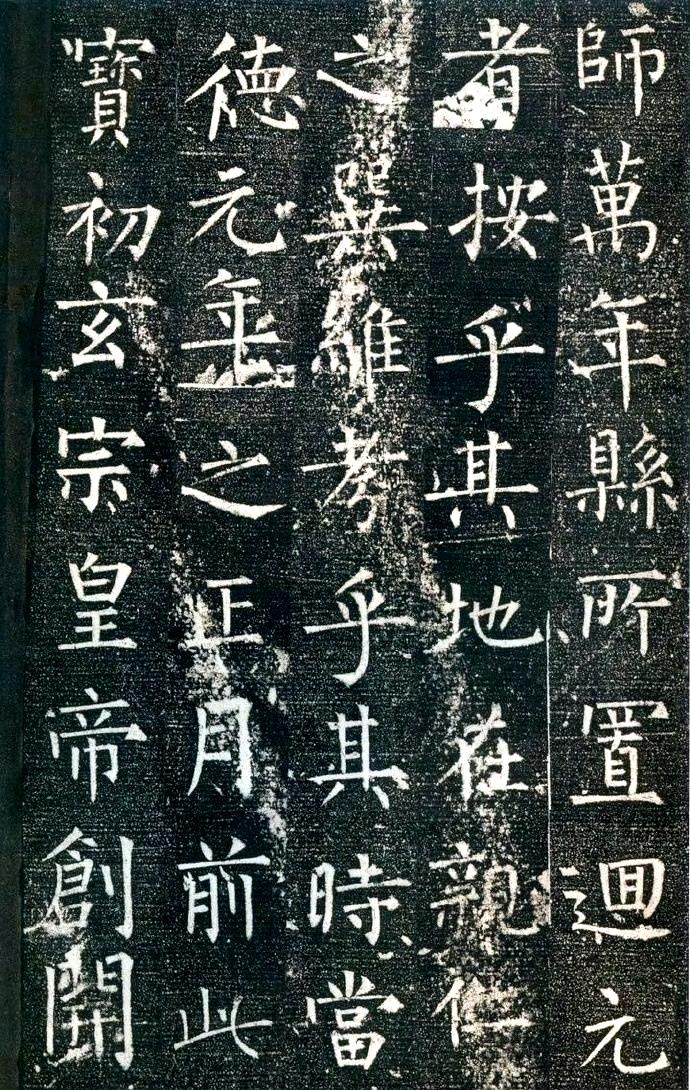 師萬年縣所置迴元
者按乎其地在親仁
之巽維考乎其時當
德元年之正月前此
寶初玄宗皇帝創開